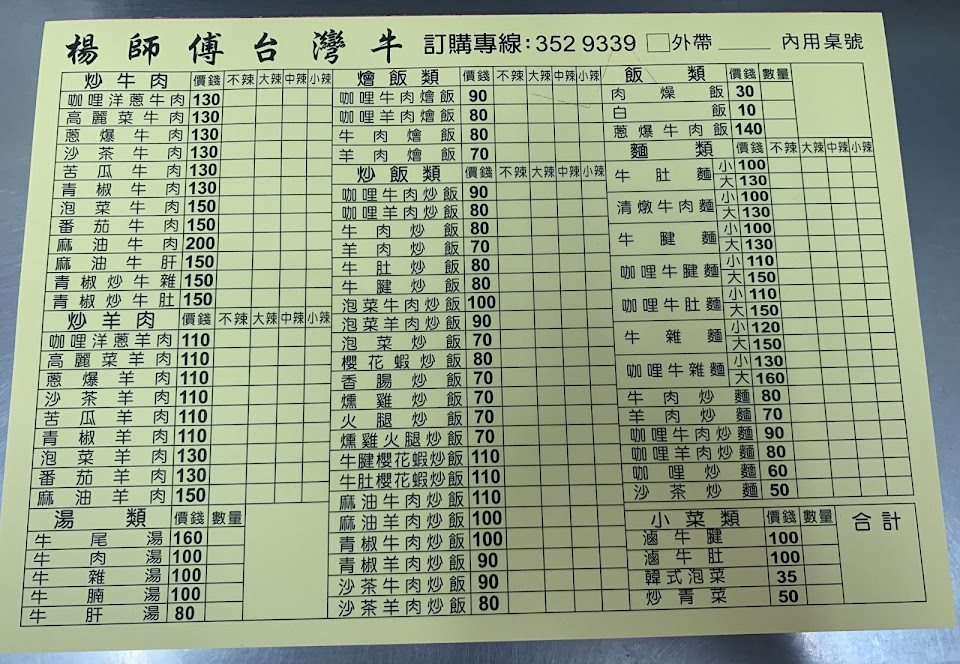 楊師傅台灣牛 訂購專線:352 9339 □外帶____ 內用桌號
炒牛肉 價錢 不辣 大辣 中辣 小辣
咖哩洋蔥牛肉 130
高麗菜牛肉 130
蔥爆牛肉 130
沙茶牛肉 130
苦瓜牛肉 130
青椒牛肉 130
泡菜牛肉 150
番茄牛肉 150
麻油牛肉 200
麻油牛肝 150
青椒炒牛雜 150
青椒炒牛肚 150
炒羊肉 價錢 不辣 大辣 中辣 小辣
咖哩洋蔥羊肉 110
高麗菜羊肉 110
蔥爆羊肉 110
沙茶羊肉 110
苦瓜羊肉 110
青椒羊肉 110
泡菜羊肉 130
番茄羊肉 130
麻油羊肉 150
湯類 價錢 數量
牛尾湯 160
牛肉湯 100
牛雜湯 100
牛腩湯 100
牛肝湯 80
燴飯類 價錢 不辣 大辣 中辣 小辣
咖哩牛肉燴飯 90
咖哩羊肉燴飯 80
牛肉燴飯 80
羊肉燴飯 70
炒飯類 價錢 不辣 大辣 中辣 小辣
咖哩牛肉炒飯 90
咖哩羊肉炒飯 80
牛肉炒飯 80
羊肉炒飯 70
牛肚炒飯 80
牛腱炒飯 80
泡菜牛肉炒飯 100
泡菜羊肉炒飯 90
泡菜炒飯 70
櫻花蝦炒飯 80
香腸炒飯 70
燻雞炒飯 70
火腿炒飯 70
燻雞火腿炒飯 70
牛腱櫻花蝦炒飯 110
牛肚櫻花蝦炒飯 110
麻油牛肉炒飯 110
麻油羊肉炒飯 100
青椒牛肉炒飯 100
青椒羊肉炒飯 90
沙茶牛肉炒飯 90
沙茶羊肉炒飯 80
飯類 價錢 數量
肉燥飯 30
白飯 10
蔥爆牛肉飯 140
麵類 價錢 不辣 大辣 中辣 小辣
牛肚麵 小 100
大 130
清燉牛肉麵 小 100
大 130
牛腱麵 小 100
大 130
咖哩牛腱麵 小 110
大 150
咖哩牛肚麵 小 110
大 150
牛雜麵 小 120
大 150
咖哩牛雜麵 小 130
大 160
牛肉炒麵 80
羊肉炒麵 70
咖哩牛肉炒麵 90
咖哩羊肉炒麵 80
咖哩炒麵 60
沙茶炒麵 50
小菜類 價錢 數量 合計
滷牛腱 100
滷牛肚 100
韓式泡菜 35
炒青菜 50